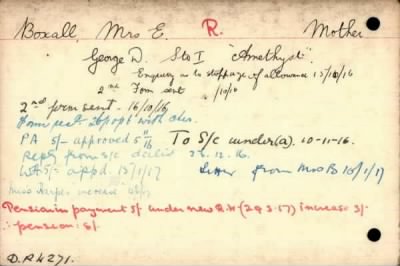 Boxall, Mrs E. R. Mother
George D. Sto I "Amethyst"
Enquiry as to stoppage of allowance 13/10/16
2nd Form sent /10/16
2nd form sent. 16/10/16
Form ret. with
PA 5/- approved 5/11/16 To S/c under (a). 10-11-16.
Reply from S/c 23.12.16.
5/- appd. 15/1/17 Letter from Mrs B 15/1/17
Miss Harper increase
Pensioners payment 5/- under new R.W (29.3.17) increase 3/-
∴ pension: 8/-
D.R 4271.